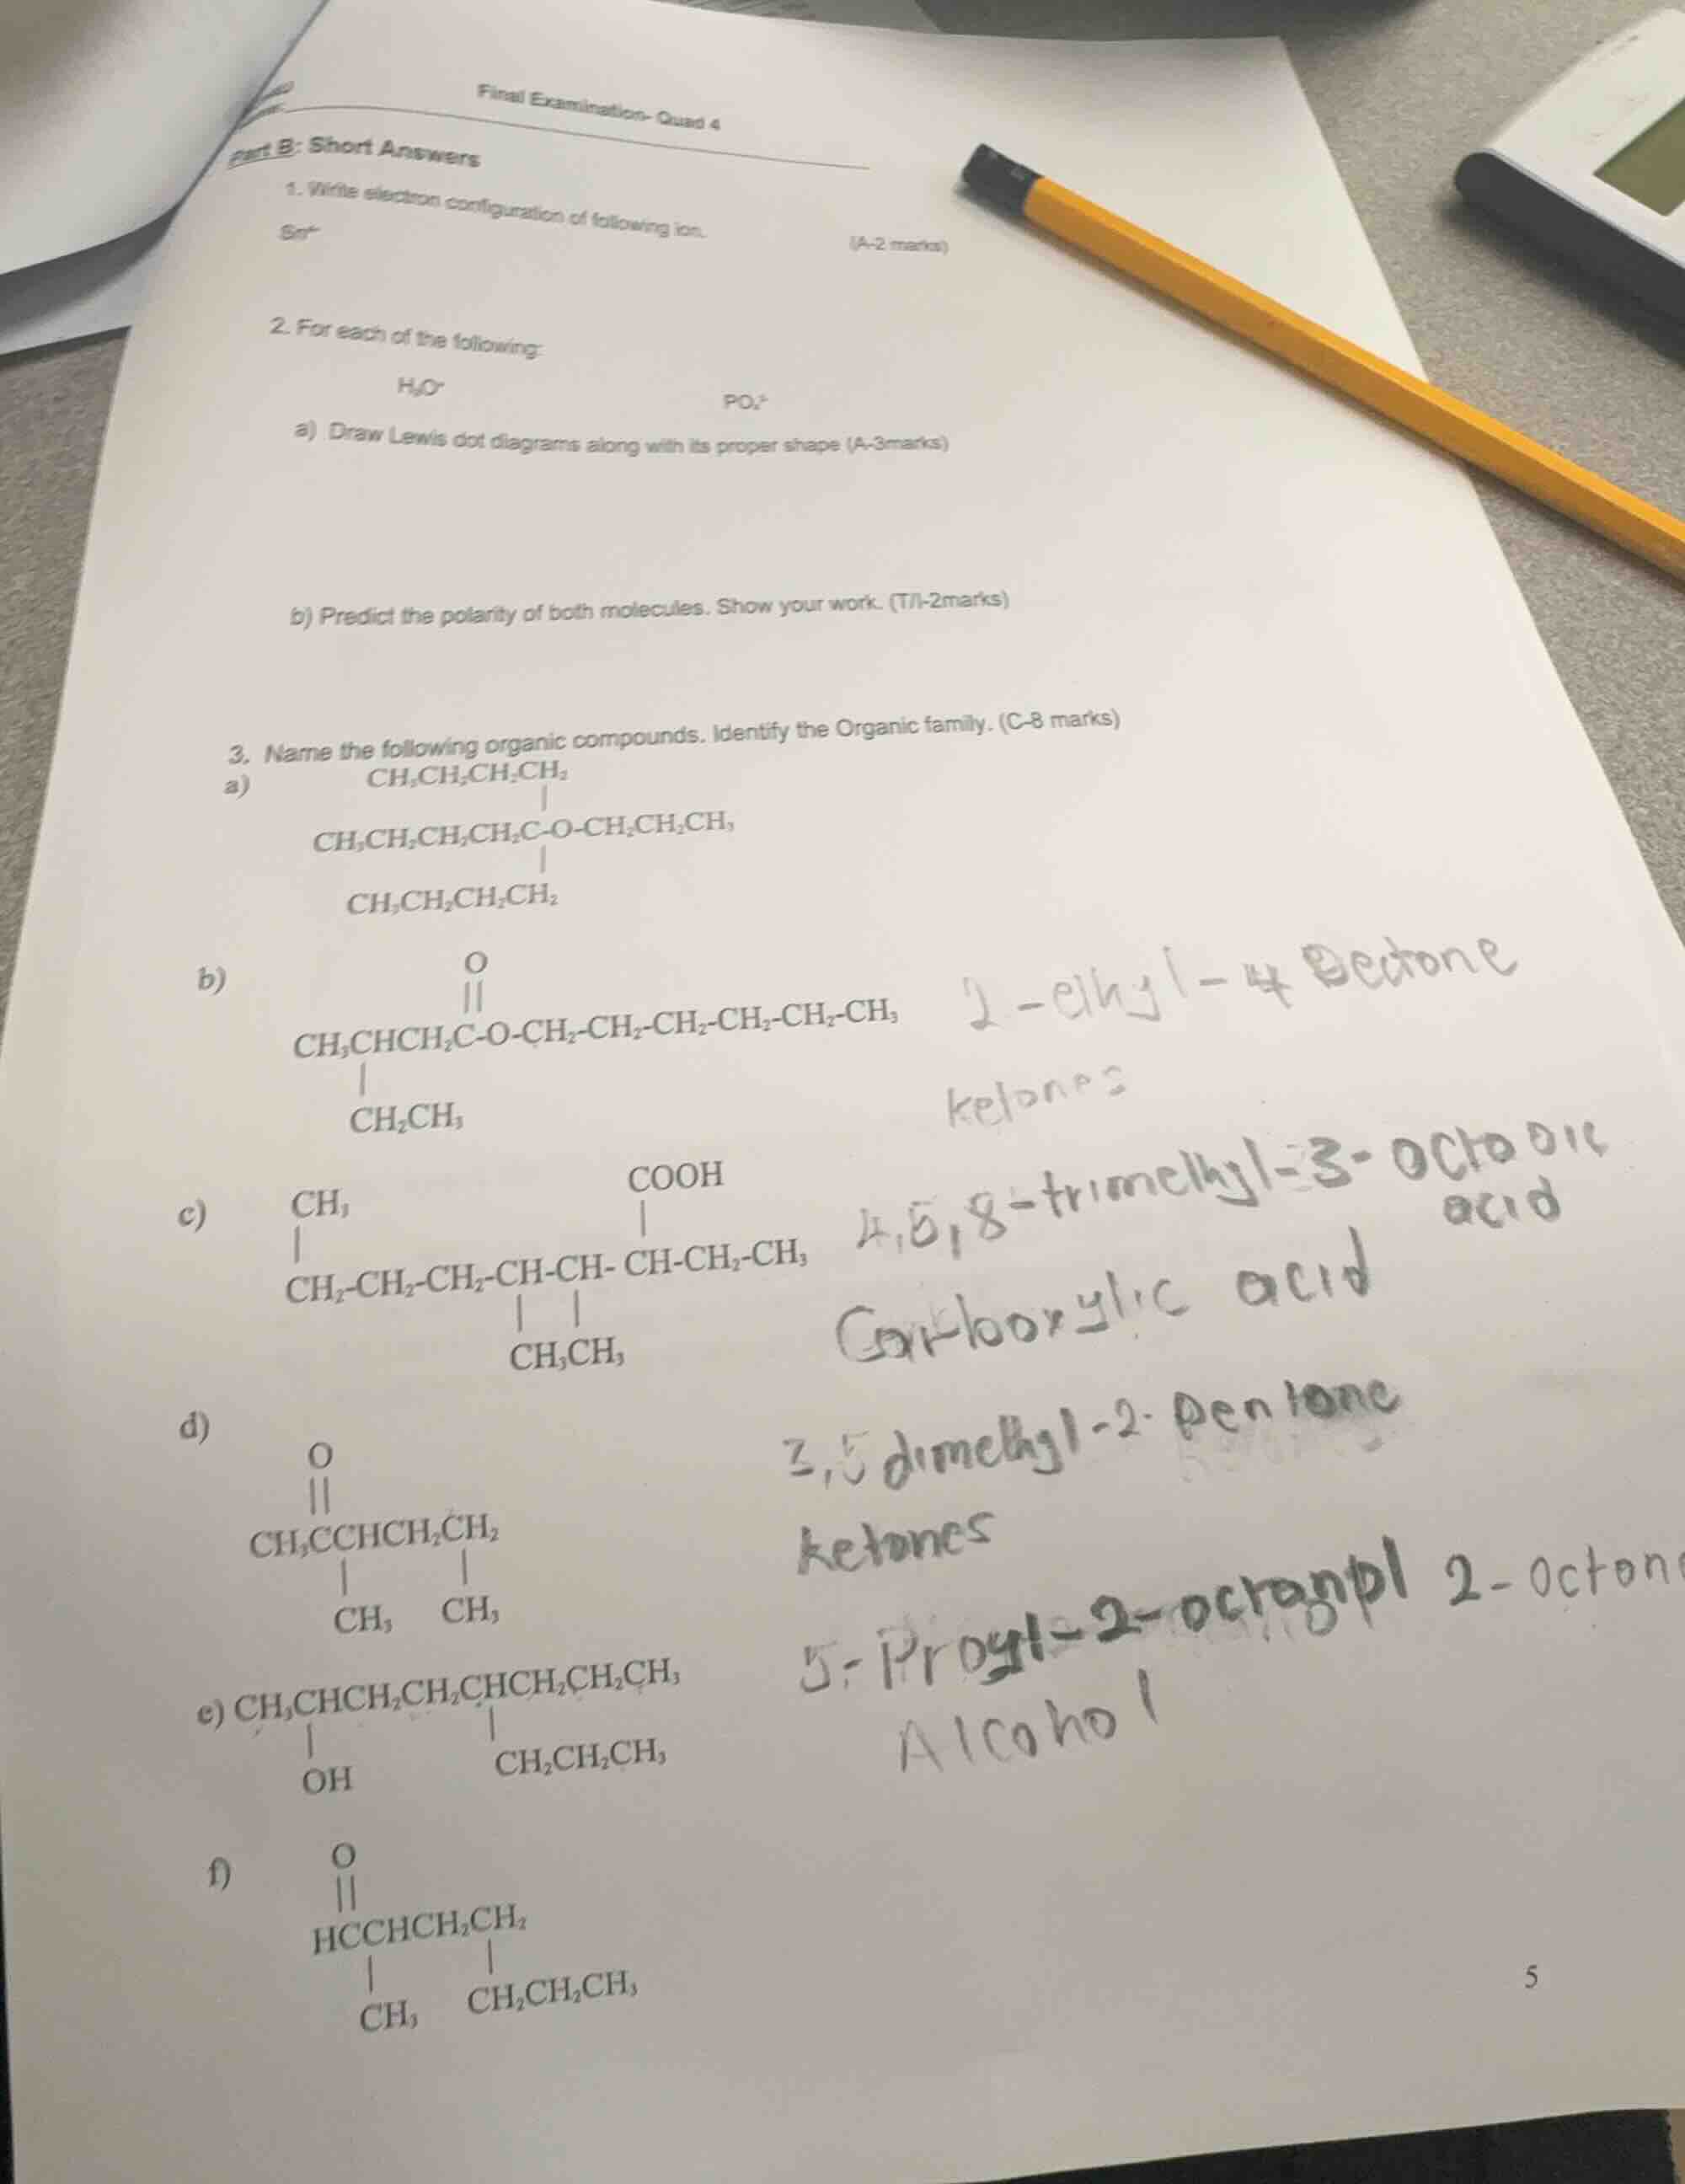 Final Examination- Quad 4
Part B: Short Answers
1. Write electron configuration of following ion.
(A-2 marks)
2. For each of the following:
H₃O⁺
a) Draw Lewis dot diagrams along with its proper shape (A-3marks)
b) Predict the polarity of both molecules. Show your work. (T/I-2marks)
3. Name the following organic compounds. Identify the Organic family. (C-8 marks)
a)
CH₃CH₂CH₂CH₂
|
CH₃CH₂CH₂CH₂C-O-CH₂CH₂CH₃
|
CH₃CH₂CH₂CH₂
b)
O
||
CH₃CHCH₂C-O-CH₂-CH₂-CH₂-CH₂-CH₂-CH₃
|
CH₂CH₃
2-ethyl-4
ketones
c)
CH₃ COOH
| |
CH₂-CH₂-CH₂-CH-CH- CH-CH₂-CH₃
| |
CH₃CH₃
4,5,8-trimethyl-3-octooic
acid
Carboxylic acid
d)
O
||
CH₃CCHCH₂CH₂
| |
CH₃ CH₃
3,5 dimethyl-2-pentone
ketones
e) CH₃CHCH₂CH₂CHCH₂CH₂CH₃
| |
OH CH₂CH₂CH₃
5-Propyl-2- 2-octon
Alcohol
f)
O
||
HCCHCH₂CH₂
| |
CH₃ CH₂CH₂CH₃
5